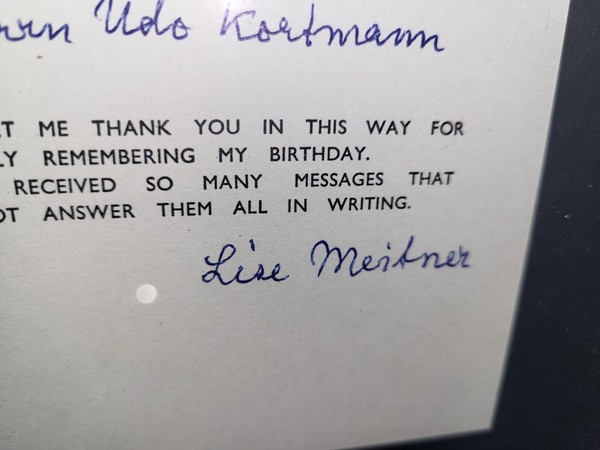 Udo Kortmann
ME THANK YOU IN THIS WAY FOR
REMEMBERING MY BIRTHDAY.
RECEIVED SO MANY MESSAGES THAT
ANSWER THEM ALL IN WRITING.
Lise Meitner